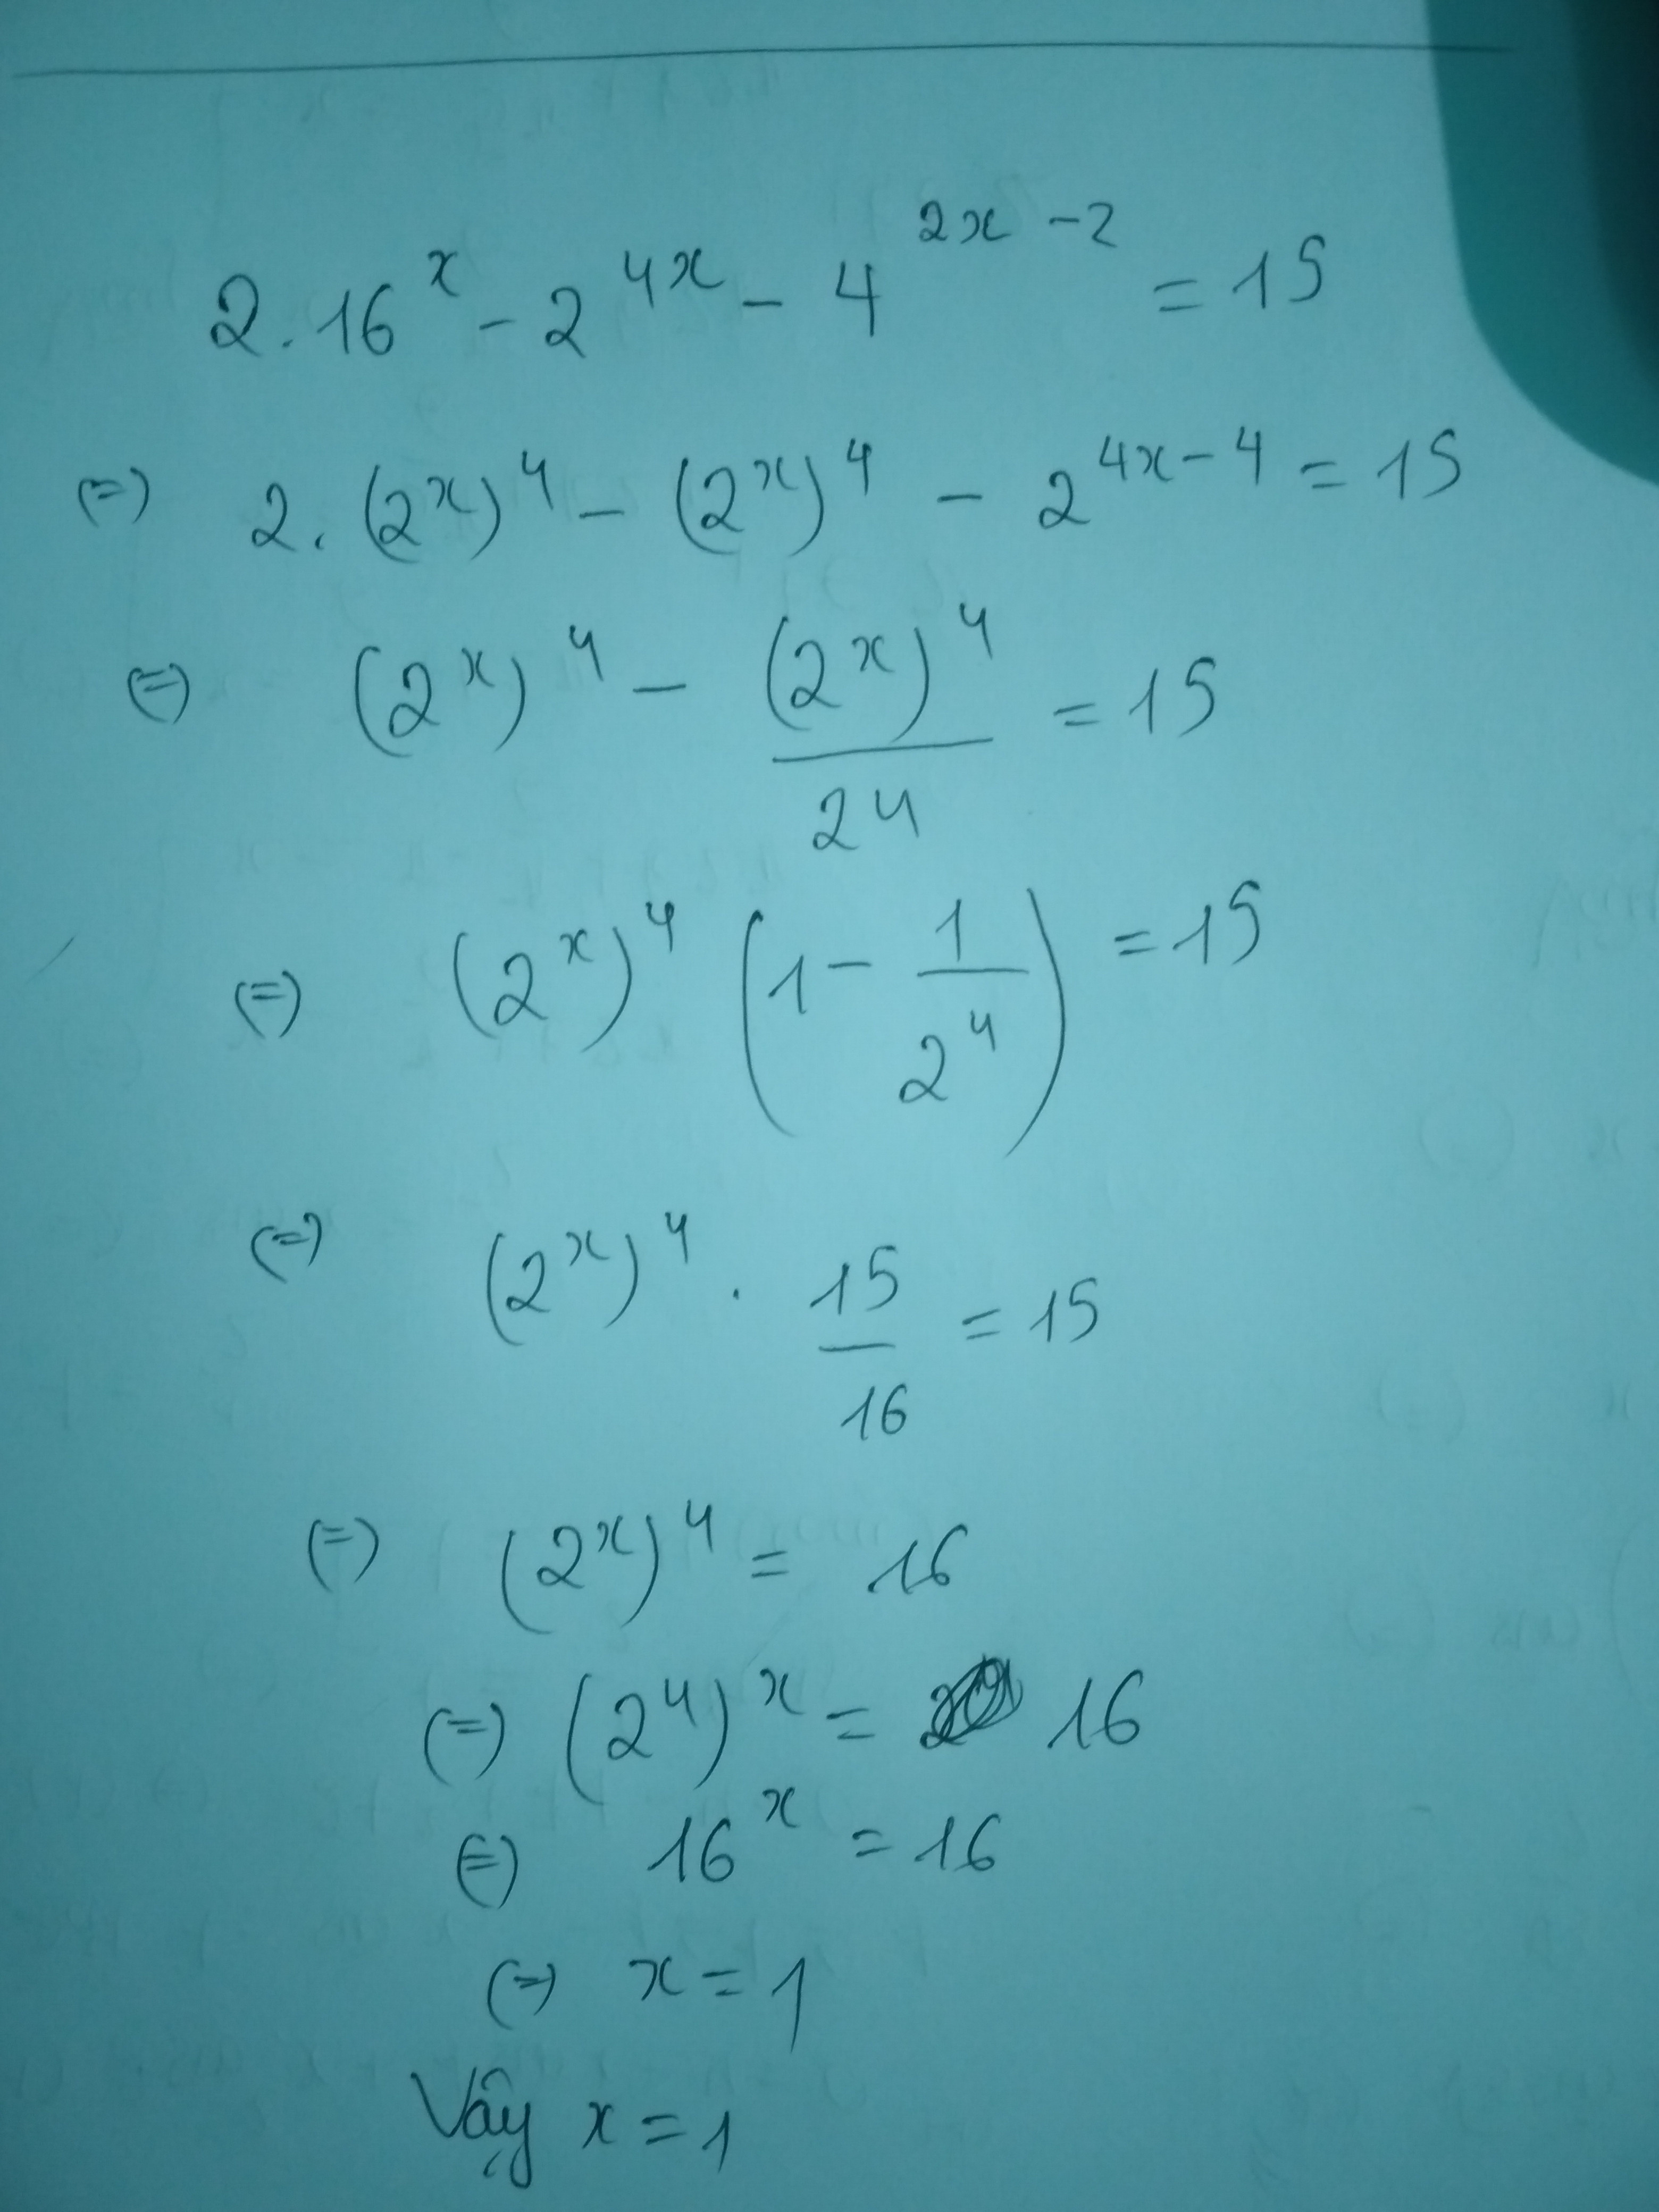 2.16^x - 2^{4x} - 4^{2x-2} = 15
(=) 2.(2^x)^4 - (2^x)^4 - 2^{4x-4} = 15
(=) (2^x)^4 - \frac{(2^x)^4}{24} = 15
(=) (2^x)^4 (1 - \frac{1}{2^4}) = 15
(=) (2^x)^4 . \frac{15}{16} = 15
(=) (2^x)^4 = 16
(=) (2^4)^x = 16
(=) 16^x = 16
(=) x = 1
Vậy x = 1